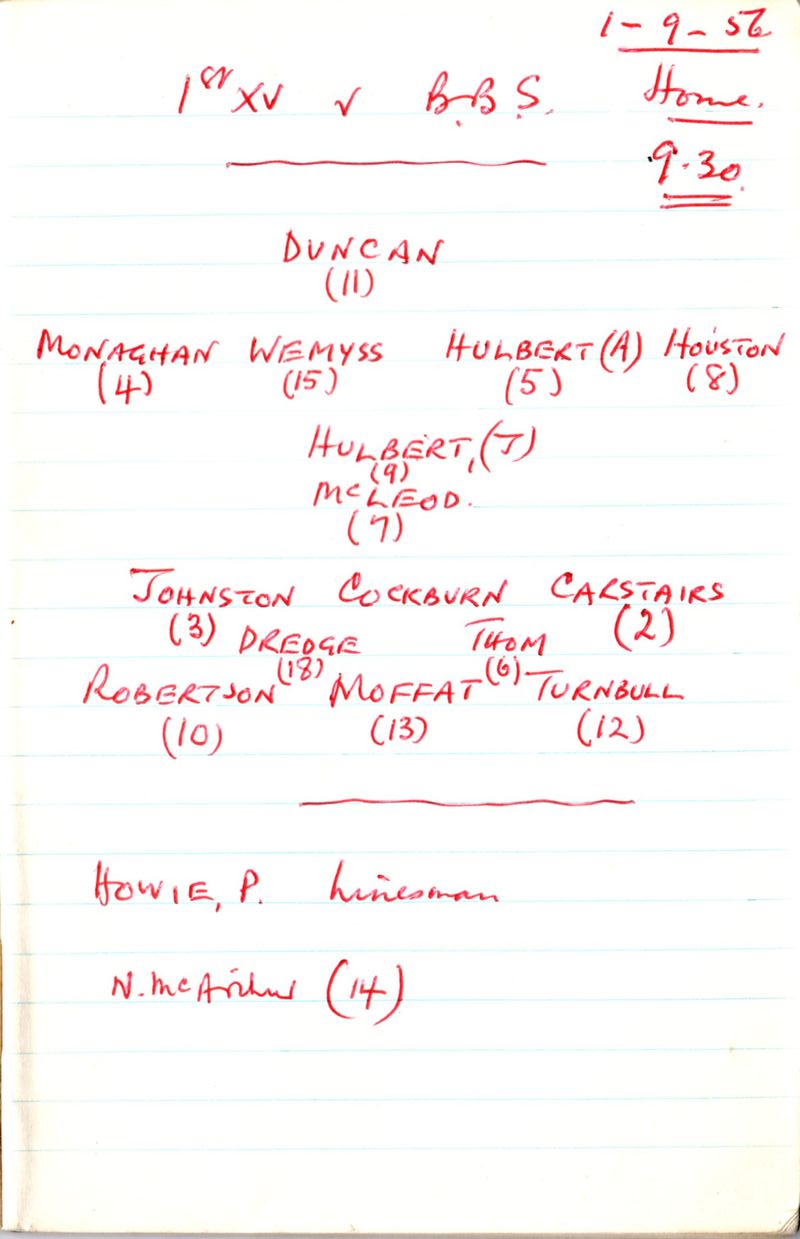 1-9-56
1st XV v B.B.S. Home.
9.30
DUNCAN
(11)
MONAGHAN WEMYSS HULBERT (A) HOUSTON
(4) (15) (5) (8)
HULBERT, (J)
(9)
McLEOD.
(7)
JOHNSTON COCKBURN CARSTAIRS
(3) (2)
DREDGE THOM
(18) (6)
ROBERTSON MOFFAT TURNBULL
(10) (13) (12)
HOWIE, P. Linesman
N. McArthur (14)